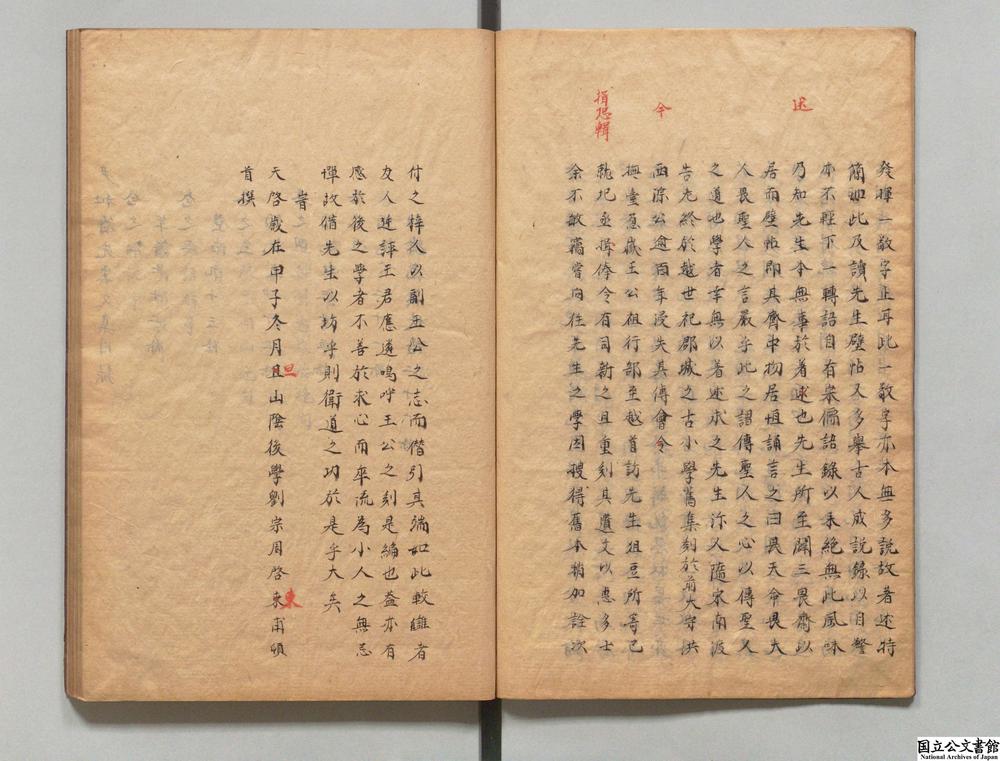 迷
今
揖恐輯
發暉一敬字正耳此一敬字亦本無多說故著述特
簡如此及讀先生壁帖又多舉古人成說錄以自警
本不輕下一轉語自有宋儒語錄以來絶無此風味
乃知先生本無事於著述也先生所至闢三畏齋以
居而壁帖即其齊中物居恒誦言之曰畏天命畏大
人畏聖人之言嚴乎此之謂傳聖人之心以傳聖人
之道也學者幸無以著述求之先生沵又隨宋南渡
告老終於越世祀郡城之古小學舊集刻於前大守洪
西淙公逾百年浸失其傳會令
撫臺蔥嶽王公徂行部至越首訪先生俎豆所等已
就圮丞揖俸令有司新之且重刻其遺文以惠多士
余不敏竊嘗向往先生之學因搜得舊本稍加詮次
付之梓人以副王公之志而僭引其端如此較讎者
友人進評王君應遴嗚呼王公之刻是編也蓋亦有
感於後之學者不善於求心而卒流為小人之無忌
憚故借先生以坊乎則衛道之功於是乎大矣
旹
天啓歲在甲子冬月且山陰後學劉宗周啓東甫頓
首撰
旦
東
国立公文書館
National Archives of Japan